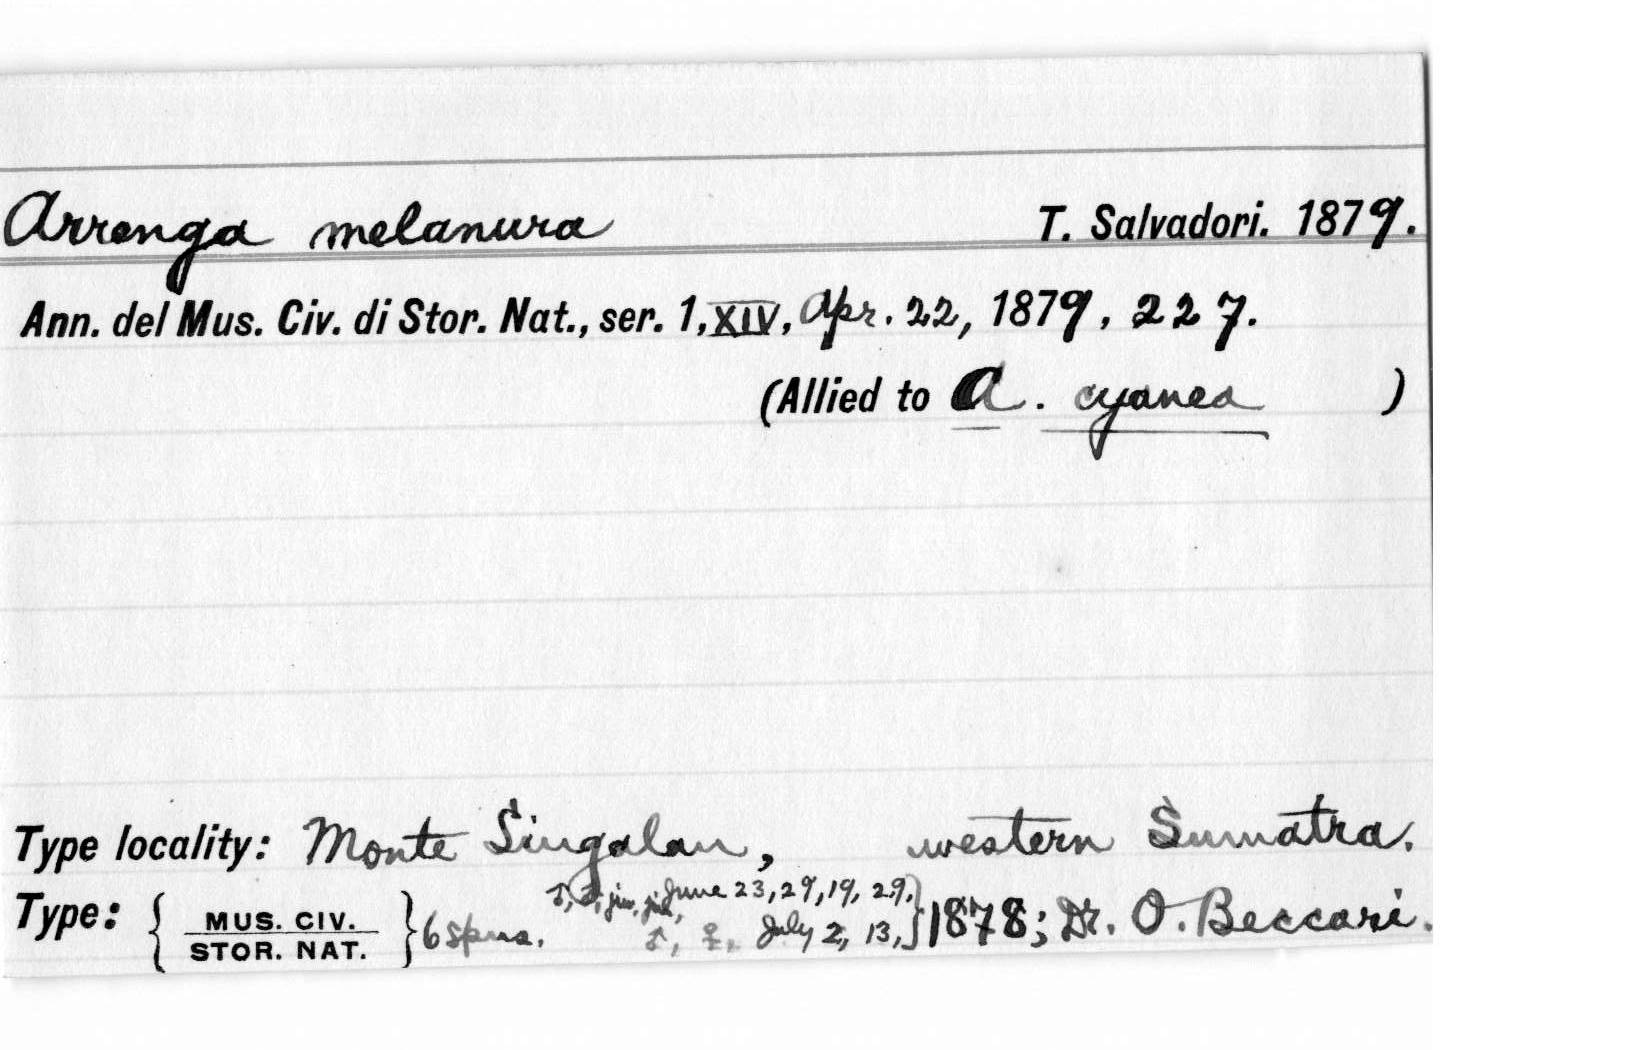 Arrenga melanura T. Salvadori. 1879.
Ann. del Mus. Civ. di Stor. Nat., ser. 1, XIV, Apr. 22, 1879, 227.
(Allied to A. cyanea )
Type locality: Monte Singalan, western Sumatra.
♂, ♂, juv., juv., June 23, 29, 19, 29,
Type: { MUS. CIV. STOR. NAT. } 6 spms. ♂, ♀, July 2, 13, } 1878; Dr. O. Beccari.